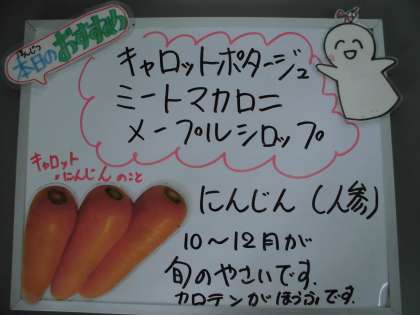 ほんじつ
本日のおすすめ
キャロットポタージュ
ミートマカロニ
メープルシロップ
キャロット
・にんじんのこと
にんじん (人参)
10～12月が
旬のやさいです.
カロテンがほうふです.